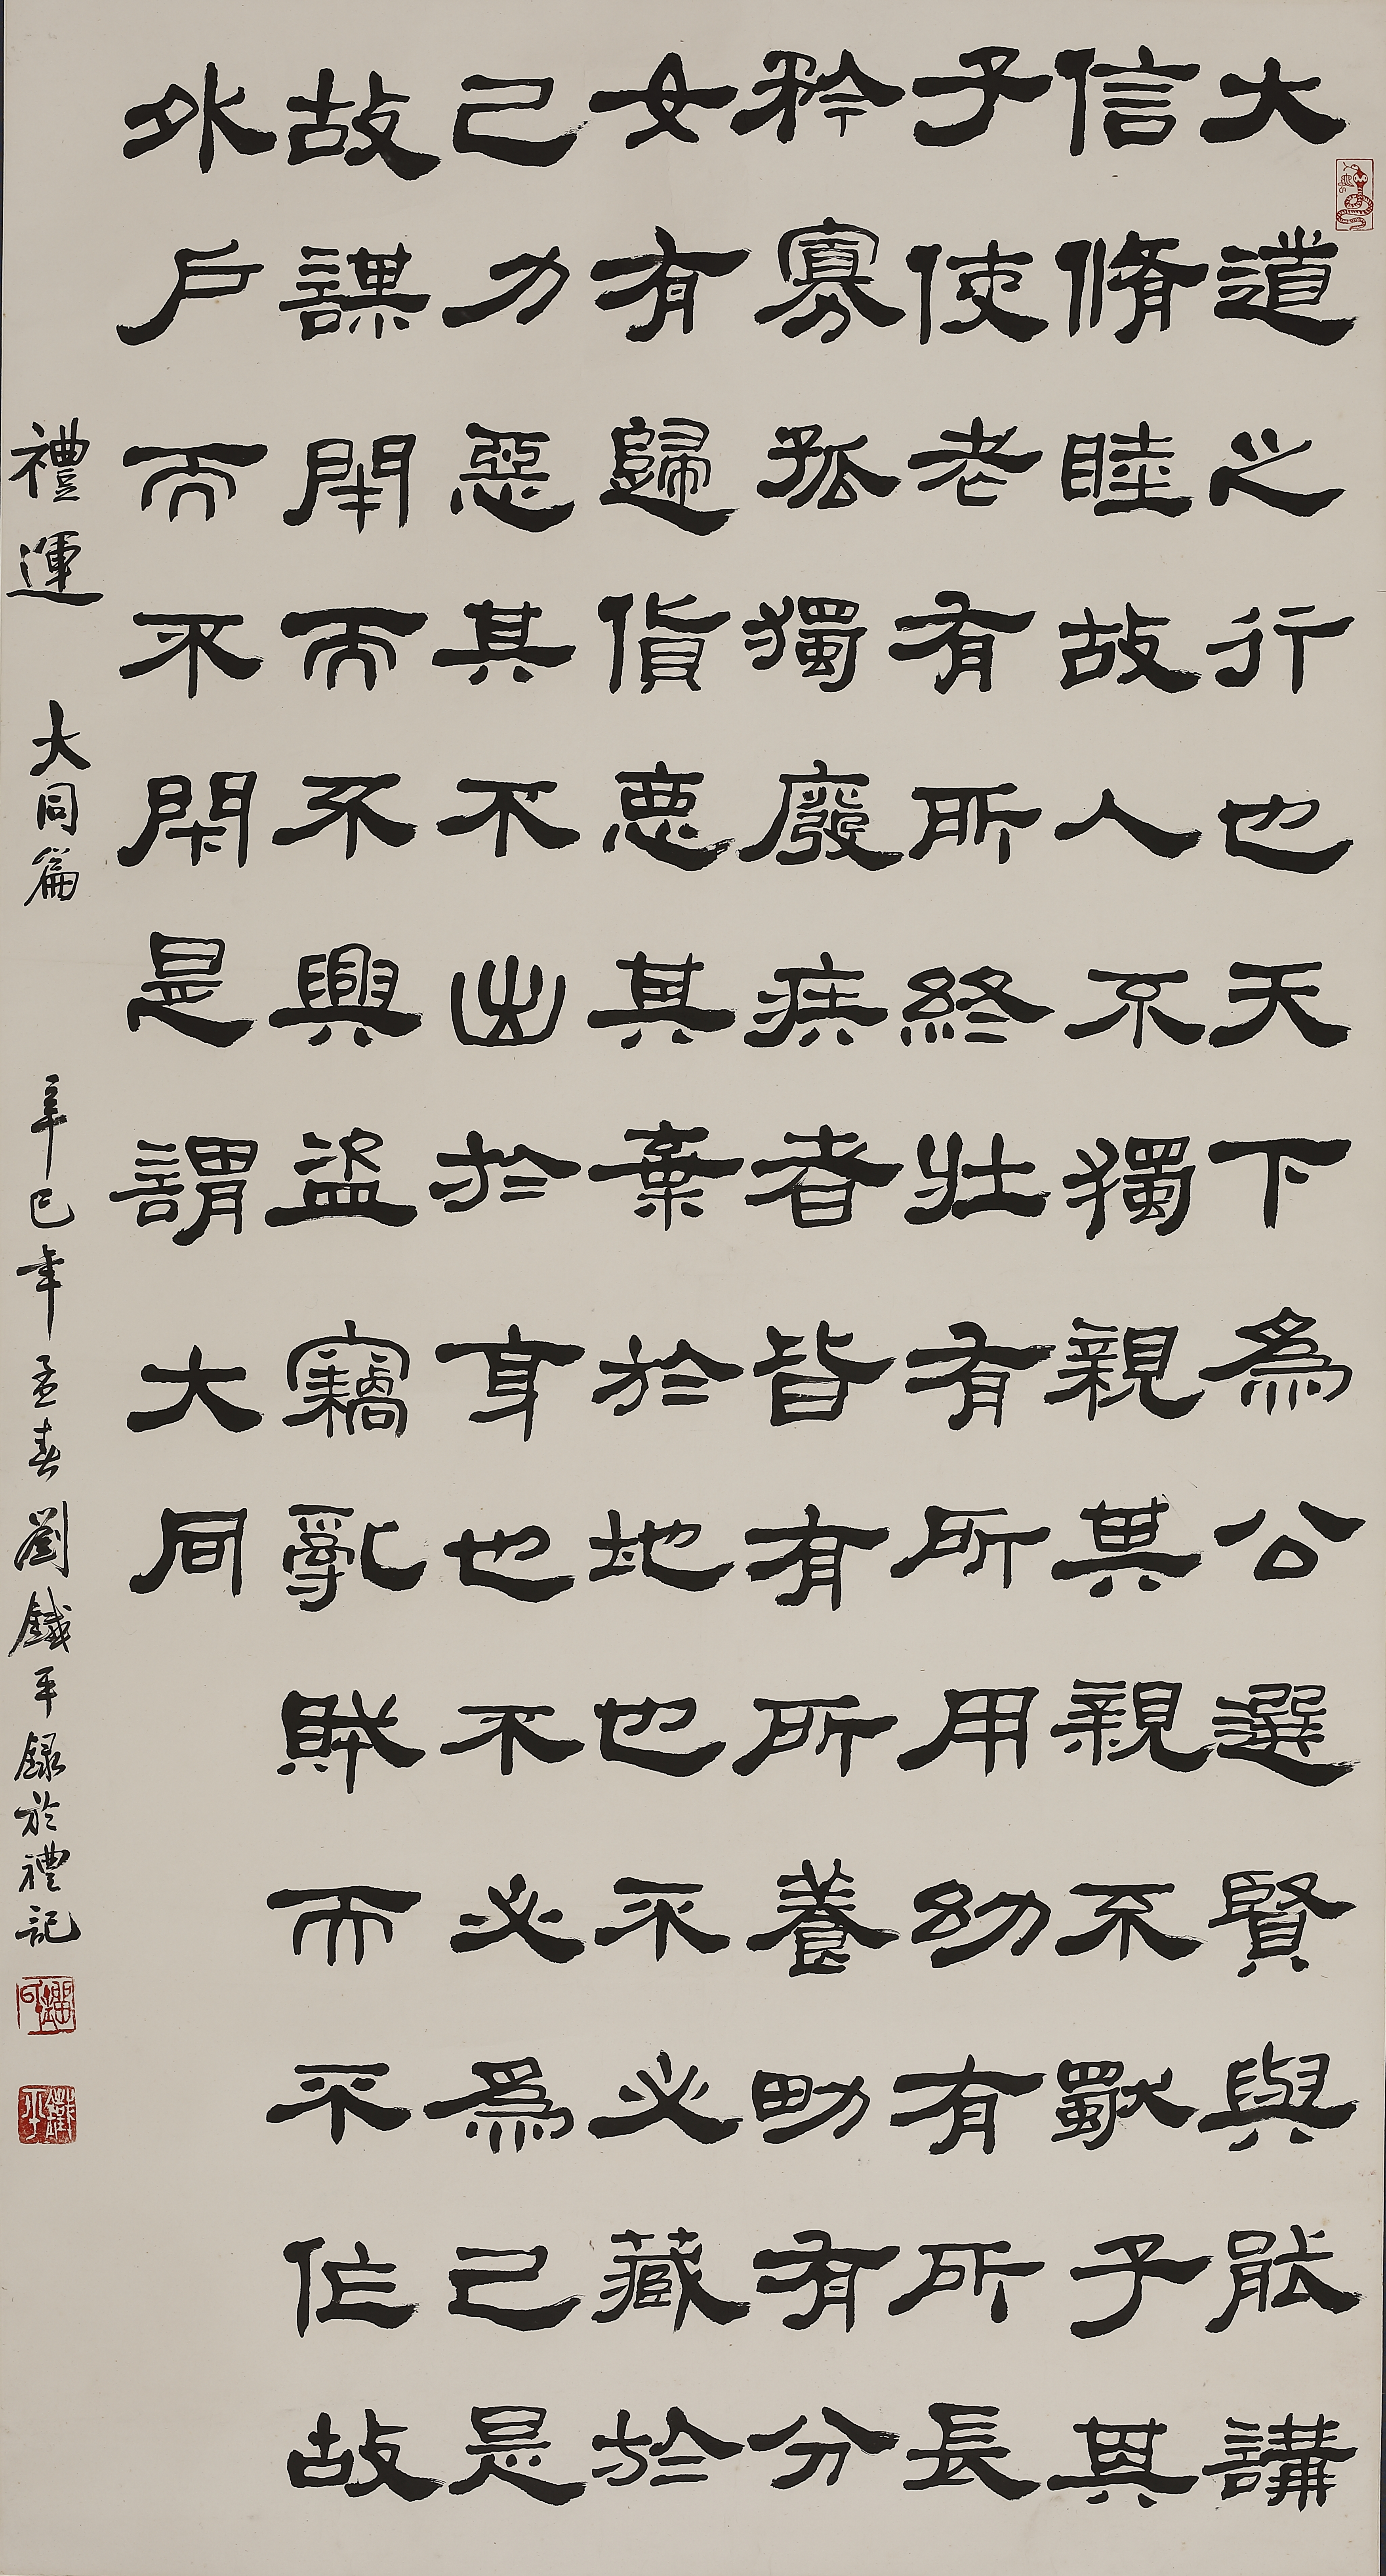 大道之行也天下為公選賢與能講
信脩睦故人不獨親其親不獨子其
子使老有所終壯有所用幼有所長
矜寡孤獨廢疾者皆有所養男有分
女有歸貨惡其棄於地也不必藏於
己力惡其不出於身也不必為己是
故謀閉而不興盜竊亂賊而不作故
外戶而不閉是謂大同
禮運 大同篇 辛巳年孟春劉鐵平録於禮記
劉印
鐵平